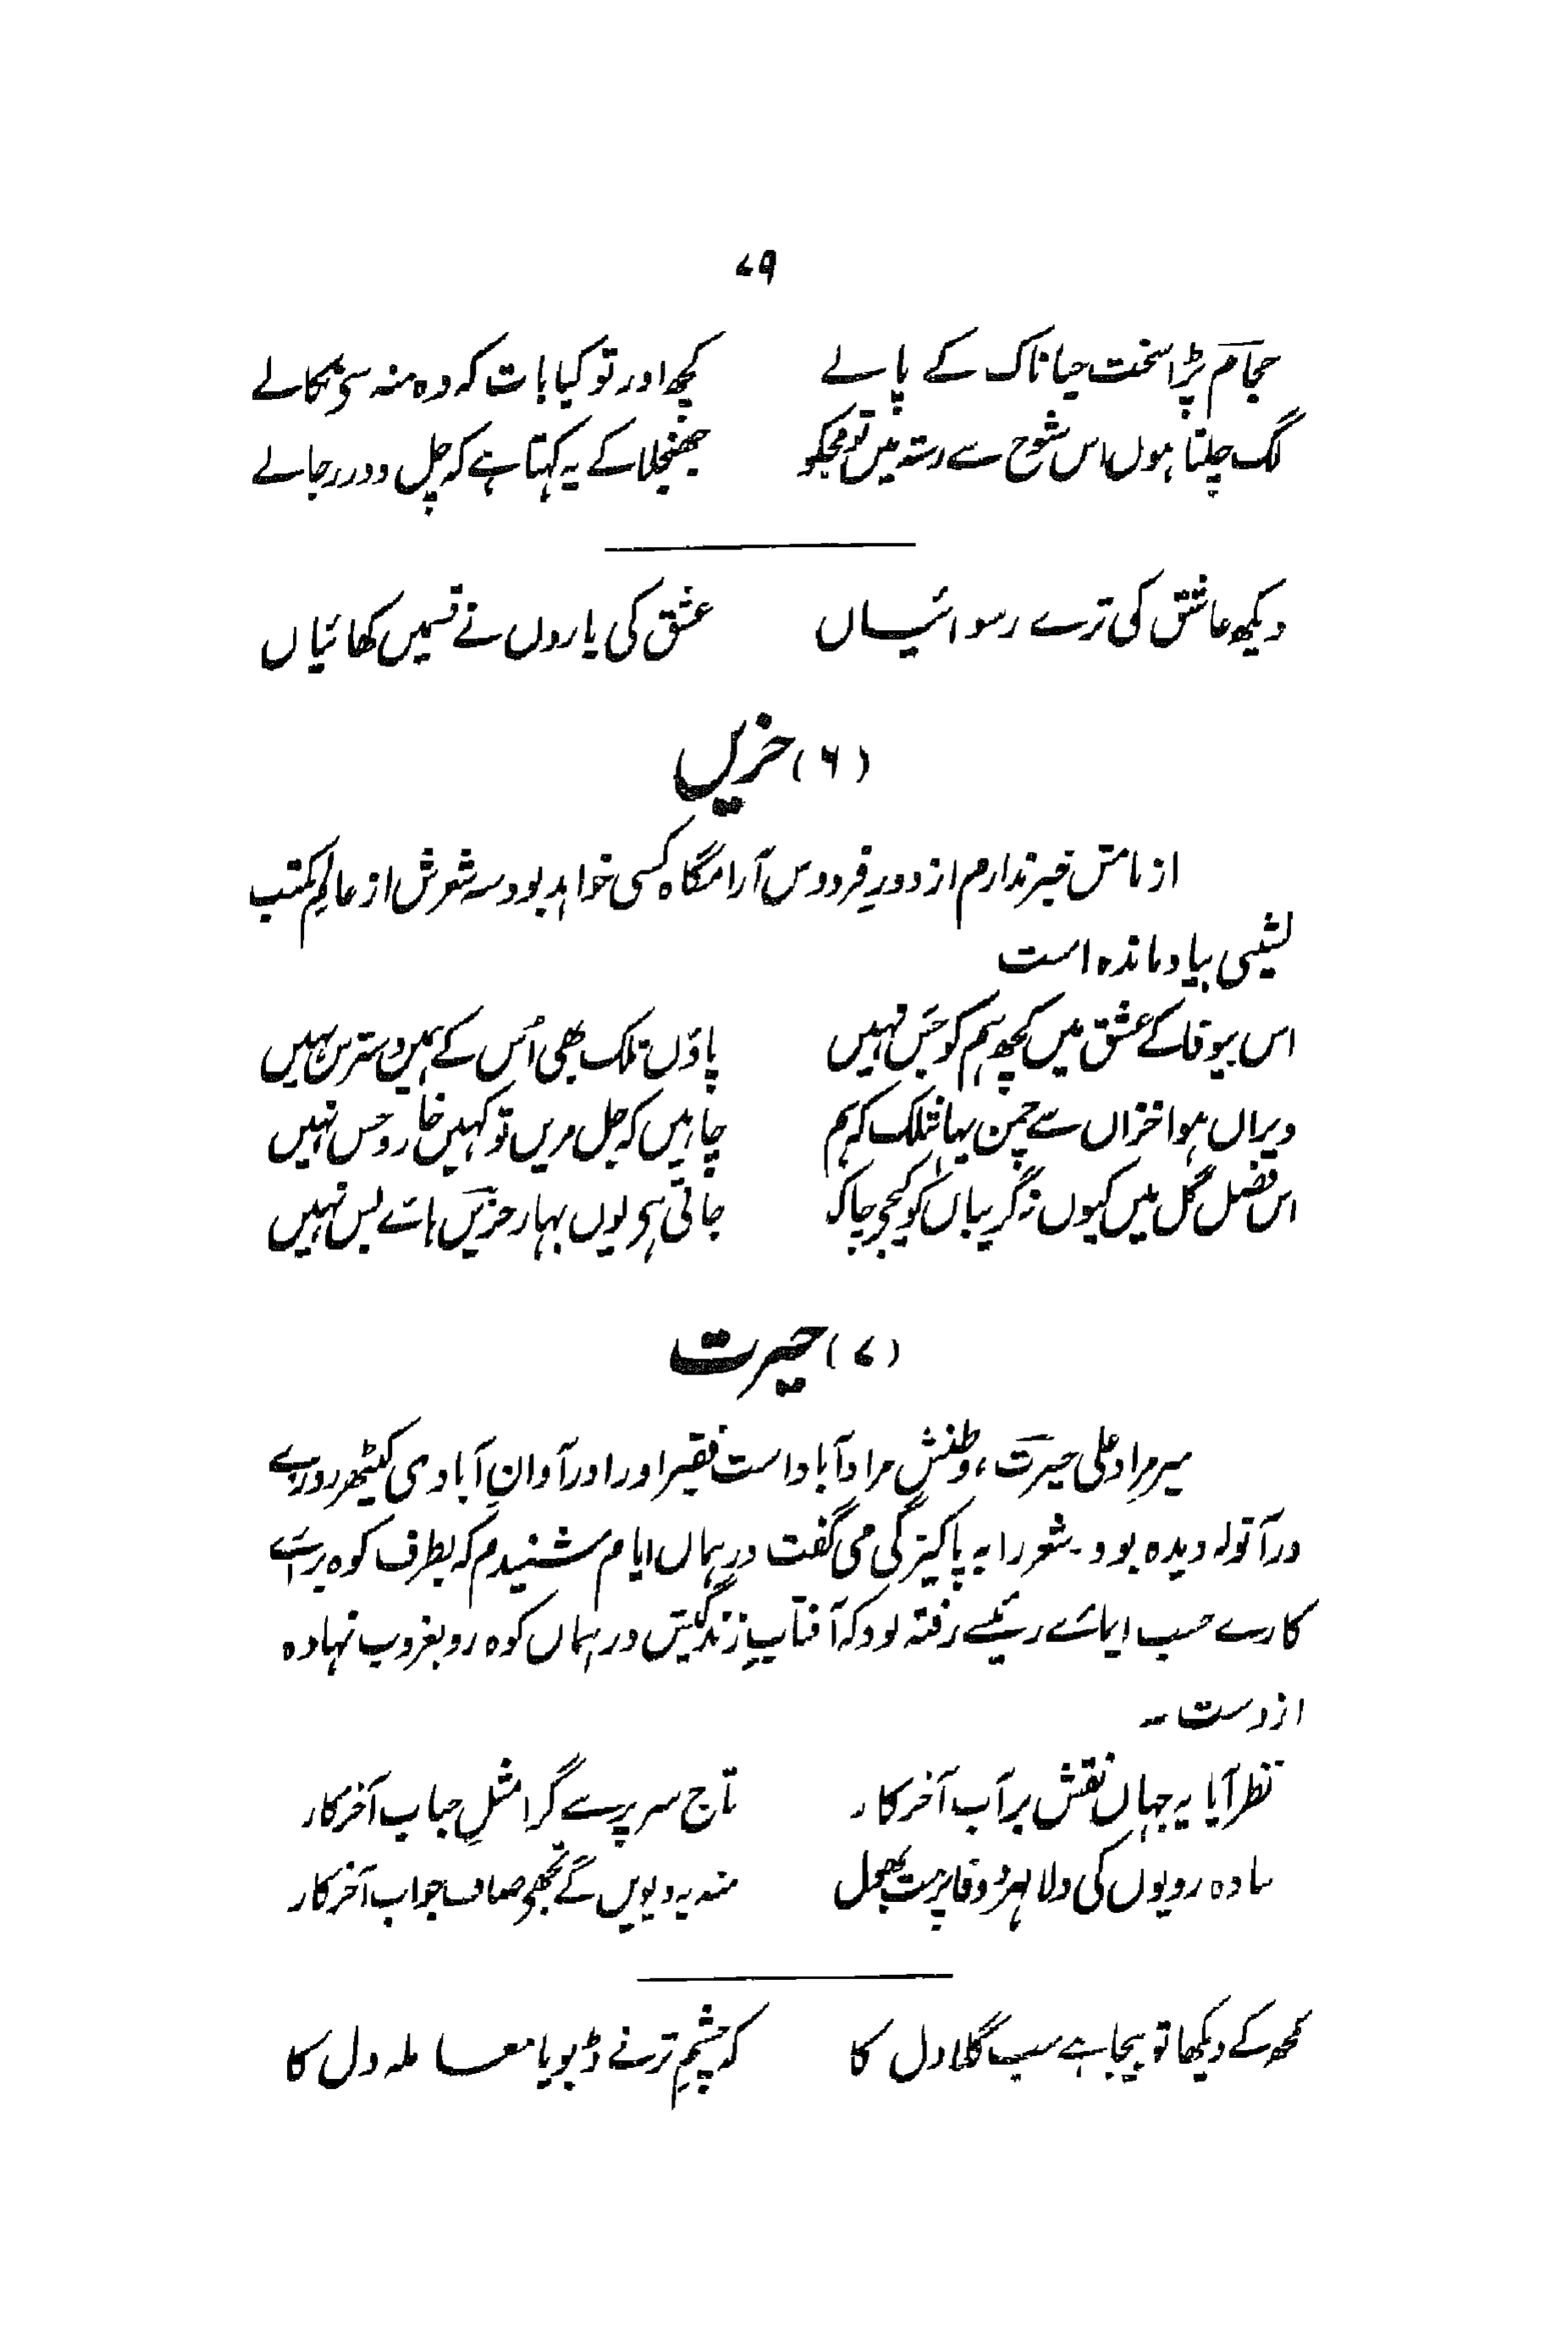 ۷۹
حجام پڑا سخت حیا ناک کے پالے کچھ اور تو کیا بات کہ وہ منہ سی نکالے
لگ چلتا ہوں اس شوخ سے رستہ میں تو مجکو جھنجلا کے یہ کہتا ہے کہ چل دور رجالے
دیکھ عاشق کی ترے رسوائیاں عشق کی یاروں نے قسمیں کھائیاں
(۶) حزیں
از نامش خبر ندارم از دورِ فردوس آرامگاہ کسی خواہد بود سہ شعرش از عالمِ مکتب
نشینی بیاد ماندہ است
اس بیوفا کے عشق میں کچھ ہم کو جس نہیں پاؤں تلک بھی اُس کے ہمیں دسترس نہیں
ویراں ہوا خزاں سے چمن یہانتلک کہ ہم چاہیں کہ جل مریں تو کہیں خار و خس نہیں
اس فصل گل میں کیوں نہ گریباں کو کیجی چاک جاتی ہی یوں بہار حزیں ہاے بس نہیں
(۷) حیرت
میر مراد علی حیرت، وطنش مرادآباد است فقیر اورا در آوانِ آبادی کٹیھر روزے
در آنولہ دیدہ بود۔ شعر را بہ پاکیزگی می گفت در ہماں ایام شنیدم کہ بطرف کوہ برائے
کارے حسب ایمائے رئیسے رفتہ بود کہ آفتابِ زندگیش در ہماں کوہ رو بغروب نہادہ
ازوست ۔
نظر آیا یہ جہاں نقش بر آب آخر کار تاج سر پر سے گرا مثلِ حباب آخر کار
سادہ رویوں کی دلا مہر و وفا پر مت بھول منہ پہ دیویں گے تجھی صاف جواب آخر کار
کچھ کے دیکھا تو بیجا ہے سب گلا دل کا کہ چشمِ تر نے ڈبویا معاملہ دل کا